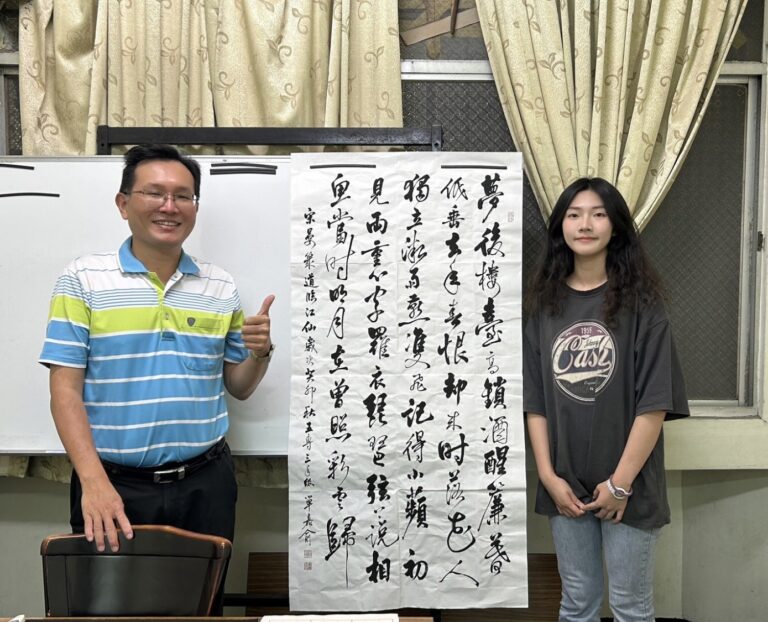 夢後樓臺高鎖酒醒簾幕
低垂去年春恨却来时落花人
獨立微雨燕雙飛記得小蘋初
見兩重心字羅衣琵琶弦上說相
思當时明月在曾照彩云歸
宋晏幾道臨江仙歲次癸卯秋
Cash